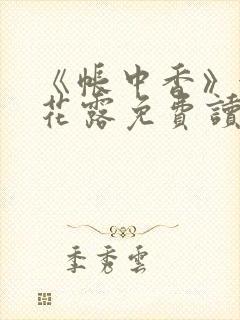 《帳中香》
花露免費讀
季秀雲